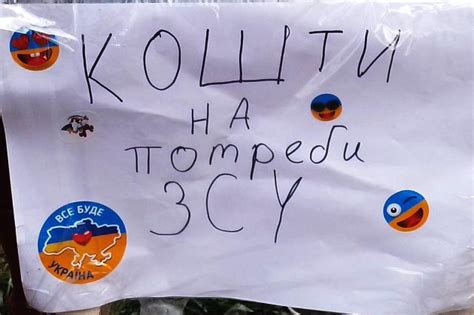 КОШТИ
НА
потреби
ЗСУ
ВСЕ БУДЕ
УКРАЇНА